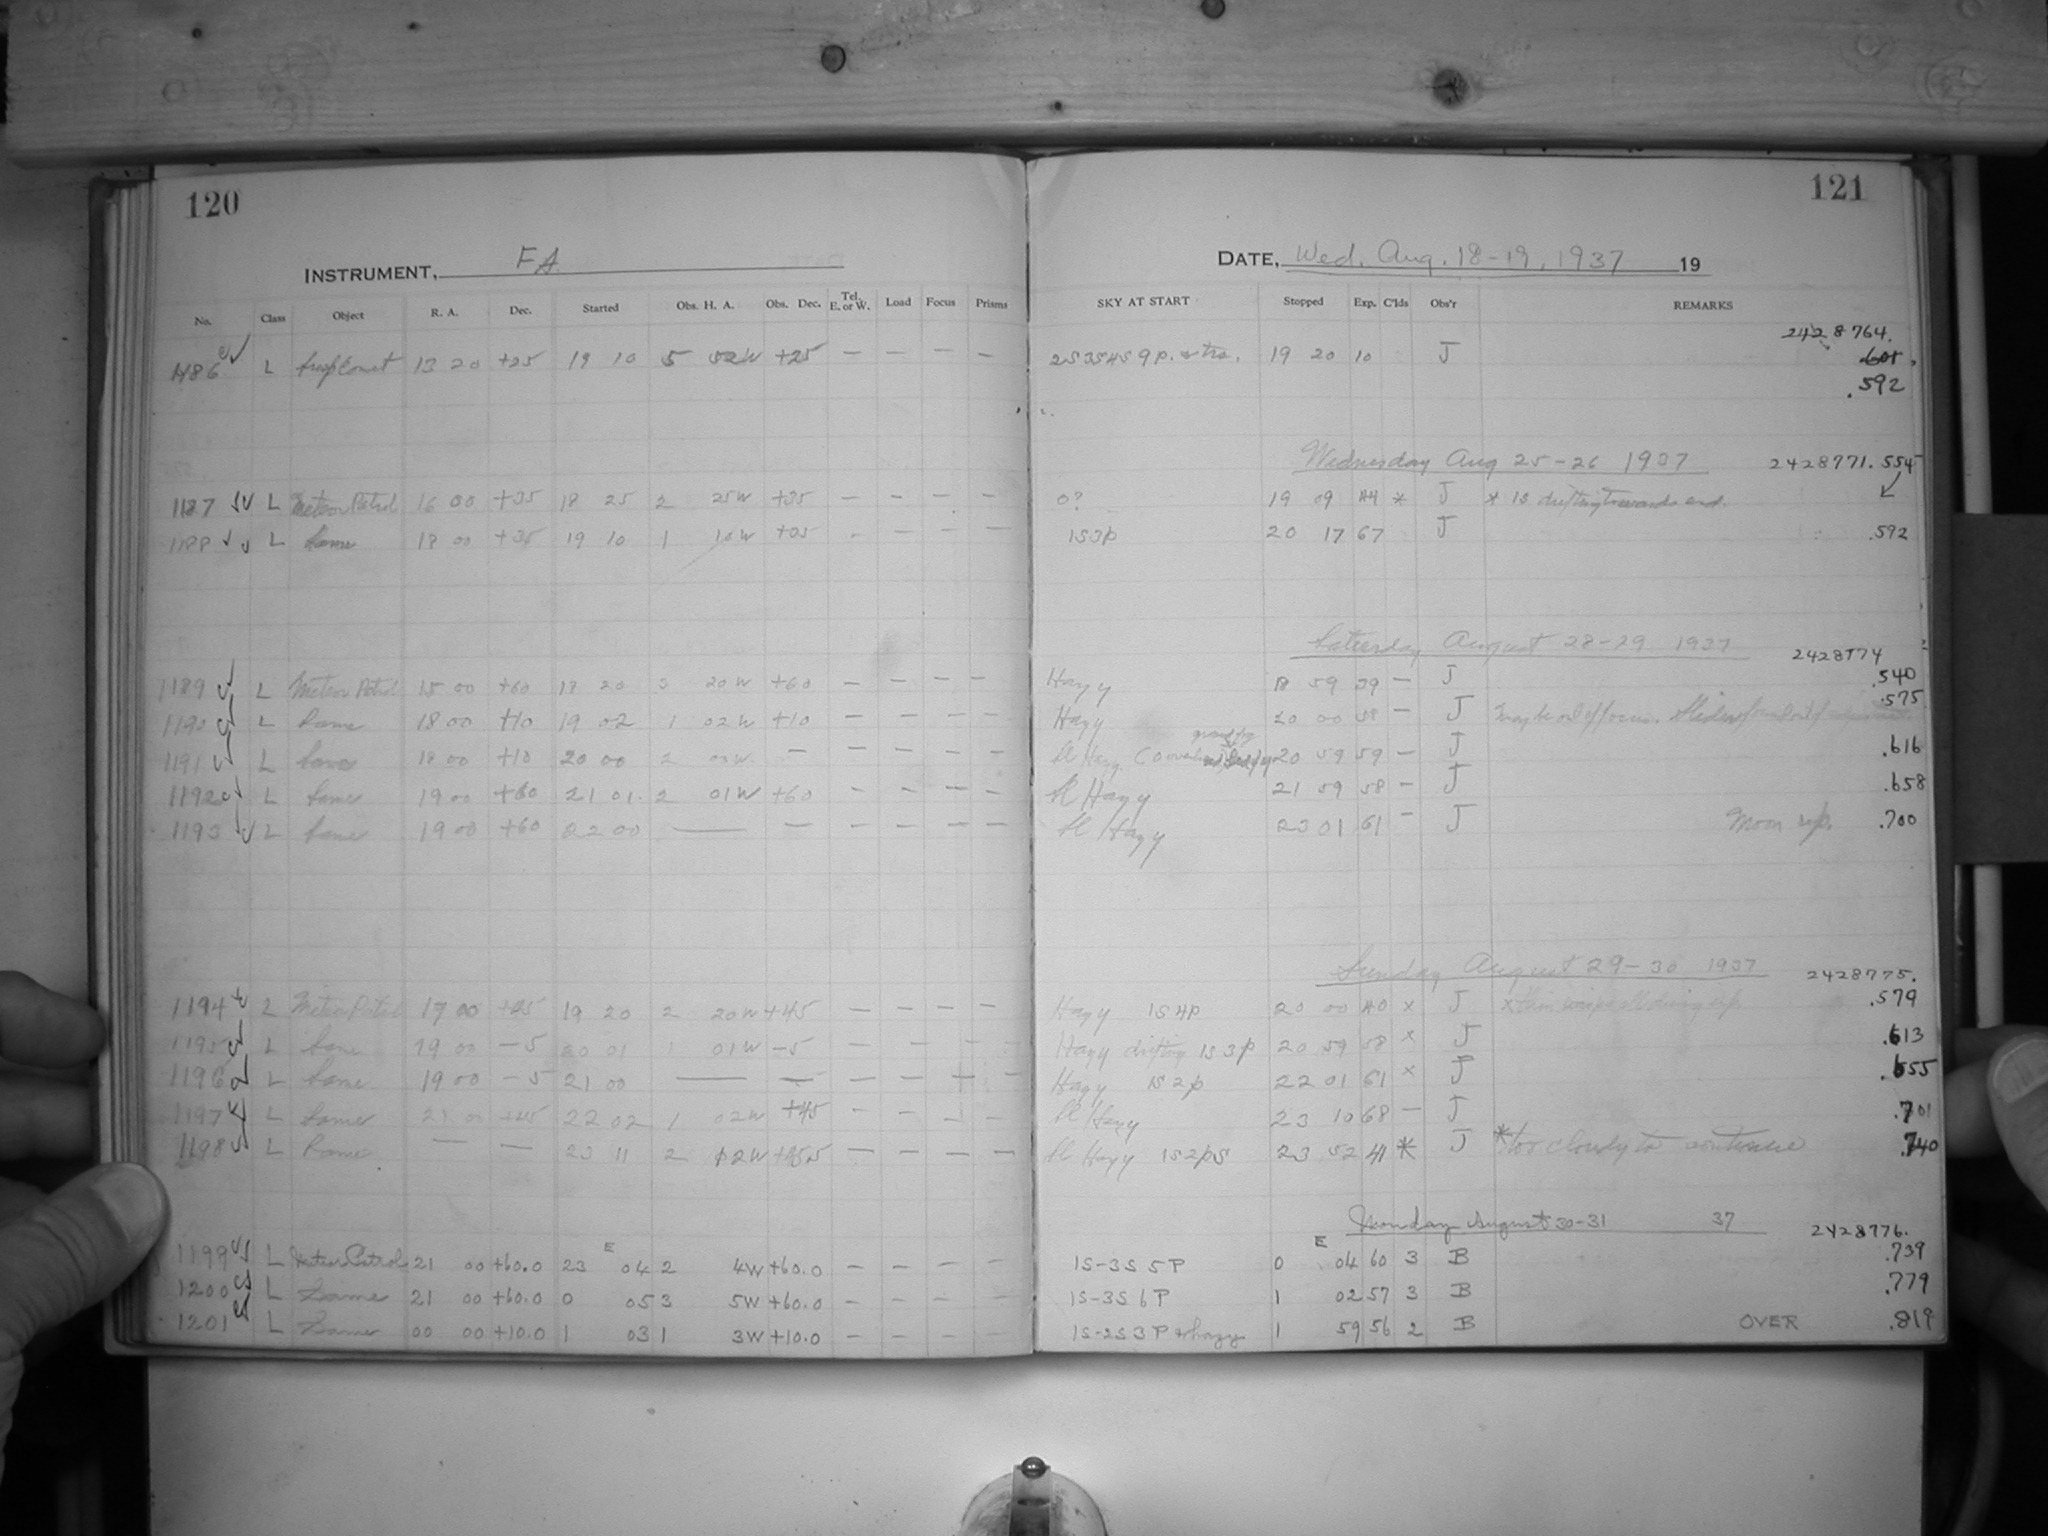 120
121
INSTRUMENT, FA
DATE, Wed. Aug. 18-19, 1937 19
No. Class Object R. A. Dec. Started Obs. H. A. Obs. Dec. Tel. E. or W. Load Focus Prisms SKY AT START Stopped Exp. C'lds Obs'r REMARKS
2428764.
1186 L Comet 13 20 +25 19 10 5 52W +25 — — — — 2S3S4S 9P. 19 20 10 J
.592
Wednesday Aug 25-26 1937 2428771.554
1187 L Meteor Patrol 16 00 +35 18 25 2 25W +35 — — — — 0? 19 09 44 * J * 1S drifting towards end.
1188 L Same 18 00 +35 19 10 1 10W +35 - — — — 1S3p 20 17 67 J .592
Saturday August 28-29 1937 2428774
1189 L Meteor Patrol 15 00 +60 18 20 3 20W +60 — — — — Hazy 18 59 39 — J .540
1190 L Same 18 00 +10 19 02 1 02W +10 — — — — Hazy 20 00 58 — J may be out of focus. .575
1191 L Same 18 00 +10 20 00 2 00W — — — — — Sl Hazy 20 59 59 — J .616
1192 L Same 19 00 +60 21 01 2 01W +60 — — — — Sl Hazy 21 59 58 — J .658
1193 L Same 19 00 +60 22 00 — — — — — — Sl Hazy 23 01 61 — J Moon up. .700
Sunday August 29-30 1937 2428775.
1194 L Meteor Patrol 17 00 +45 19 20 2 20W +45 — — — — Hazy 1S4P 20 00 40 x J .579
1195 L Same 19 00 -5 20 01 1 01W -5 — — — — Hazy drifting 1S3P 20 59 58 x J .613
1196 L Same 19 00 -5 21 00 — — — — — — Hazy 1S2p 22 01 61 x J .655
1197 L Same 21 00 +45 22 02 1 02W +45 — — — — Sl Hazy 23 10 68 — J .701
1198 L Same — — 23 11 2 12W +45 — — — — Sl Hazy 1S2pS 23 52 41 * J * too cloudy to continue .740
Monday August 30-31 37 2428776.
1199 L Meteor Patrol 21 00 +60.0 23 E 04 2 4W +60.0 — — — — 1S-3S 5P 0 E 04 60 3 B .739
1200 L Same 21 00 +60.0 0 05 3 5W +60.0 — — — — 1S-3S 6P 1 02 57 3 B .779
1201 L Same 00 00 +10.0 1 03 1 3W +10.0 — — — — 1S-2S 3P & hazy 1 59 56 2 B OVER .819